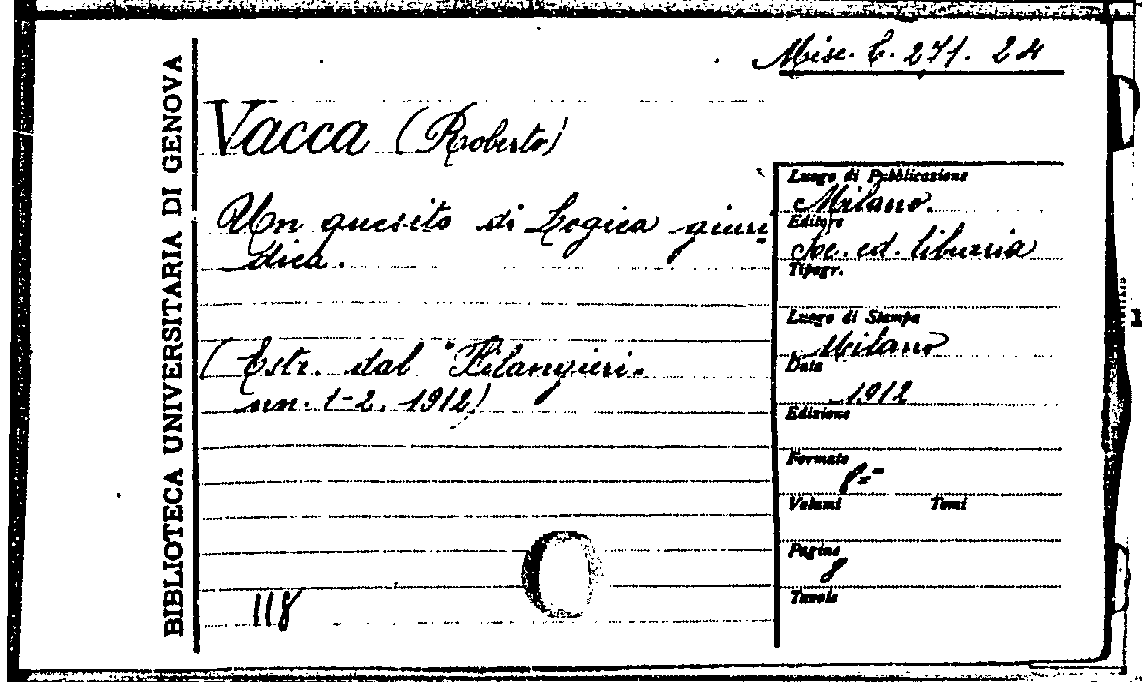 Misc. C. 271. 24
BIBLIOTECA UNIVERSITARIA DI GENOVA
Vacca (Roberto)
Un quesito di Logica giuri=
dica.
(Estr. dal "Filangieri"
nn. 1-2. 1912)
118
Luogo di Pubblicazione
Milano.
Editore
Soc. ed. libraria
Tipogr.
Luogo di Stampa
Milano
Data
1912
Edizione
Formato
8=º
Volumi Tomi
Pagine
8
Tavole